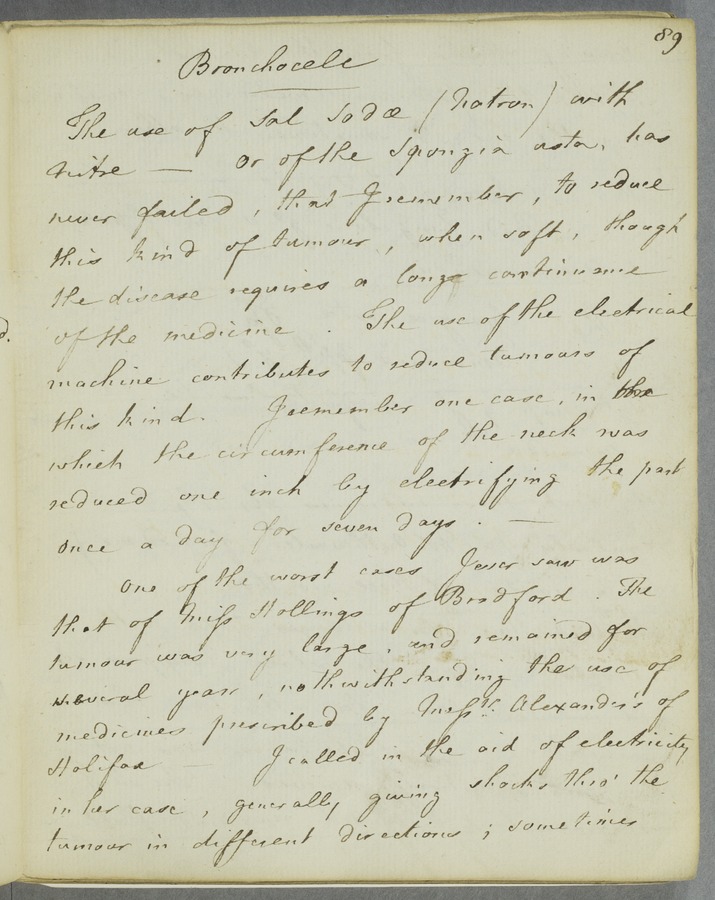 89
Bronchocele
The use of Sal Sodæ (Natron) with
Nitre — or of the Spongia usta, has
never failed, that I remember, to reduce
this kind of tumour, when soft, though
the disease requires a long continuance
of the medicine. The use of the electrical
machine contributes to reduce tumours of
this kind. I remember one case, in
which the circumference of the neck was
reduced one inch by electrifying the part
once a day for seven days. —
One of the worst cases I ever saw was
that of Miss Hollings of Bradford. The
tumour was very large, and remained for
several years, nothwithstanding the use of
medicines prescribed by Messrs. Alexander's of
Halifax — I called in the aid of electricity
in her case, generally giving shocks thro' the
tumour in different directions; sometimes
d.